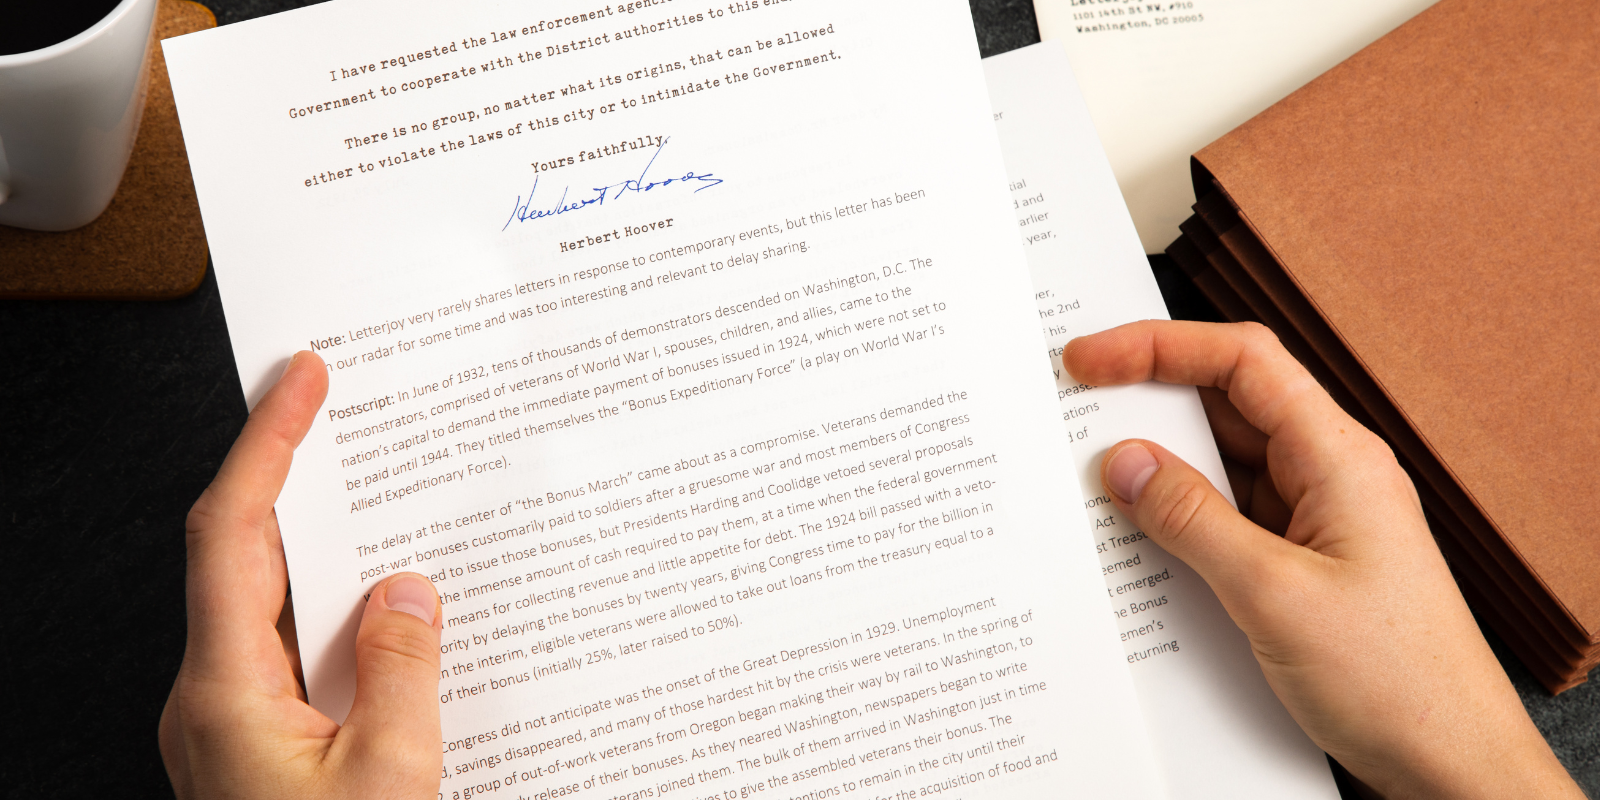 I have requested the law enforcement
Government to cooperate with the District authorities to this
There is no group, no matter what its origins, that can be allowed
either to violate the laws of this city or to intimidate the Government.
Yours faithfully,
Herbert Hoover
Herbert Hoover
Note: Letterjoy very rarely shares letters in response to contemporary events, but this letter has been
our radar for some time and was too interesting and relevant to delay sharing.
Postscript: In June of 1932, tens of thousands of demonstrators descended on Washington, D.C. The
demonstrators, comprised of veterans of World War I, spouses, children, and allies, came to the
nation's capital to demand the immediate payment of bonuses issued in 1924, which were not set to
be paid until 1944. They titled themselves the "Bonus Expeditionary Force" (a play on World War I's
Allied Expeditionary Force).
The delay at the center of "the Bonus March" came about as a compromise. Veterans demanded the
post-war bonuses customarily paid to soldiers after a gruesome war and most members of Congress
to issue those bonuses, but Presidents Harding and Coolidge vetoed several proposals
the immense amount of cash required to pay them, at a time when the federal government
means for collecting revenue and little appetite for debt. The 1924 bill passed with a veto-
ority by delaying the bonuses by twenty years, giving Congress time to pay for the billion in
n the interim, eligible veterans were allowed to take out loans from the treasury equal to a
of their bonus (initially 25%, later raised to 50%).
Congress did not anticipate was the onset of the Great Depression in 1929. Unemployment
, savings disappeared, and many of those hardest hit by the crisis were veterans. In the spring of
a group of out-of-work veterans from Oregon began making their way by rail to Washington, to
release of their bonuses. As they neared Washington, newspapers began to write
terans joined them. The bulk of them arrived in Washington just in time
ives to give the assembled veterans their bonus. The
tentions to remain in the city until their
for the acquisition of food and
1101 14th St NW, #910
Washington, DC 20005
er
tial
d and
arlier
year,
ver,
he 2nd
his
ations
d of
Act
st Treasu
eemed
t emerged.
he Bonus
emen's
eturning